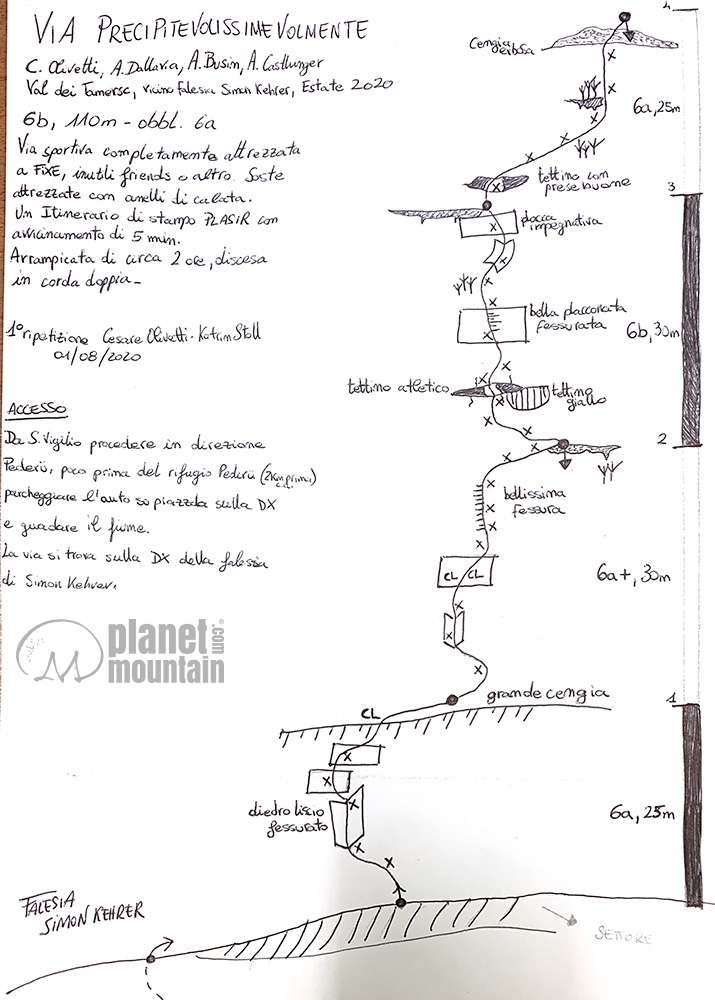 VIA PRECIPITEVOLISSIMEVOLMENTE
C. Olivetti, A. Dallavia, A. Busin, A. Castlunger
Val dei Tamersc, vicino falesia Simon Kehrer, Estate 2020
6b, 110m - obbl. 6a
Via sportiva completamente attrezzata
a FIXE, inutili friends o altro. Soste
attrezzate con anelli di calata.
Un Itinerario di stampo PLASIR con
avvicinamento di 5 min.
Arrampicata di circa 2 ore, discesa
in corda doppia -
1° ripetizione Cesare Olivetti - Katrin Stoll
01/08/2020
ACCESSO
Da S. Vigilio procedere in direzione
Pederü, poco prima del rifugio Pederü (2Km prima)
parcheggiare l'auto so piazzola sulla DX
e guadare il fiume.
La via si trova sulla DX della falesia
di Simon Kehrer.
planet
mountain
.com
4
Cengia
erbosa
6a, 25m
tettino con
prese buone
3
placca
impegnativa
bella placconata
fessurata
6b, 30m
tettino atletico
tettino
giallo
2
bellissima
fessura
CL CL
6a+, 30m
grande cengia
1
CL
diedro liscio
fessurato
6a, 25m
FALESIA
SIMON KEHRER
SETTORE